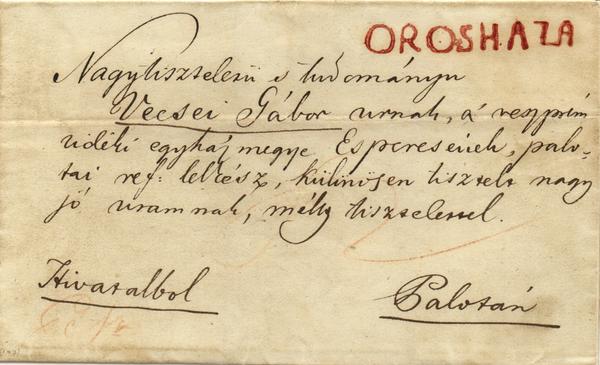 OROSHAZA
Nagytiszteletü s tudományu
Vecsei Gábor urnak, a veszprém
vidéki egyházmegye Esperesének, palo-
tai ref: lelkész, különösen tisztelt nagy
jó uramnak, mély tisztelettel.
Hivatalbol
Palotán